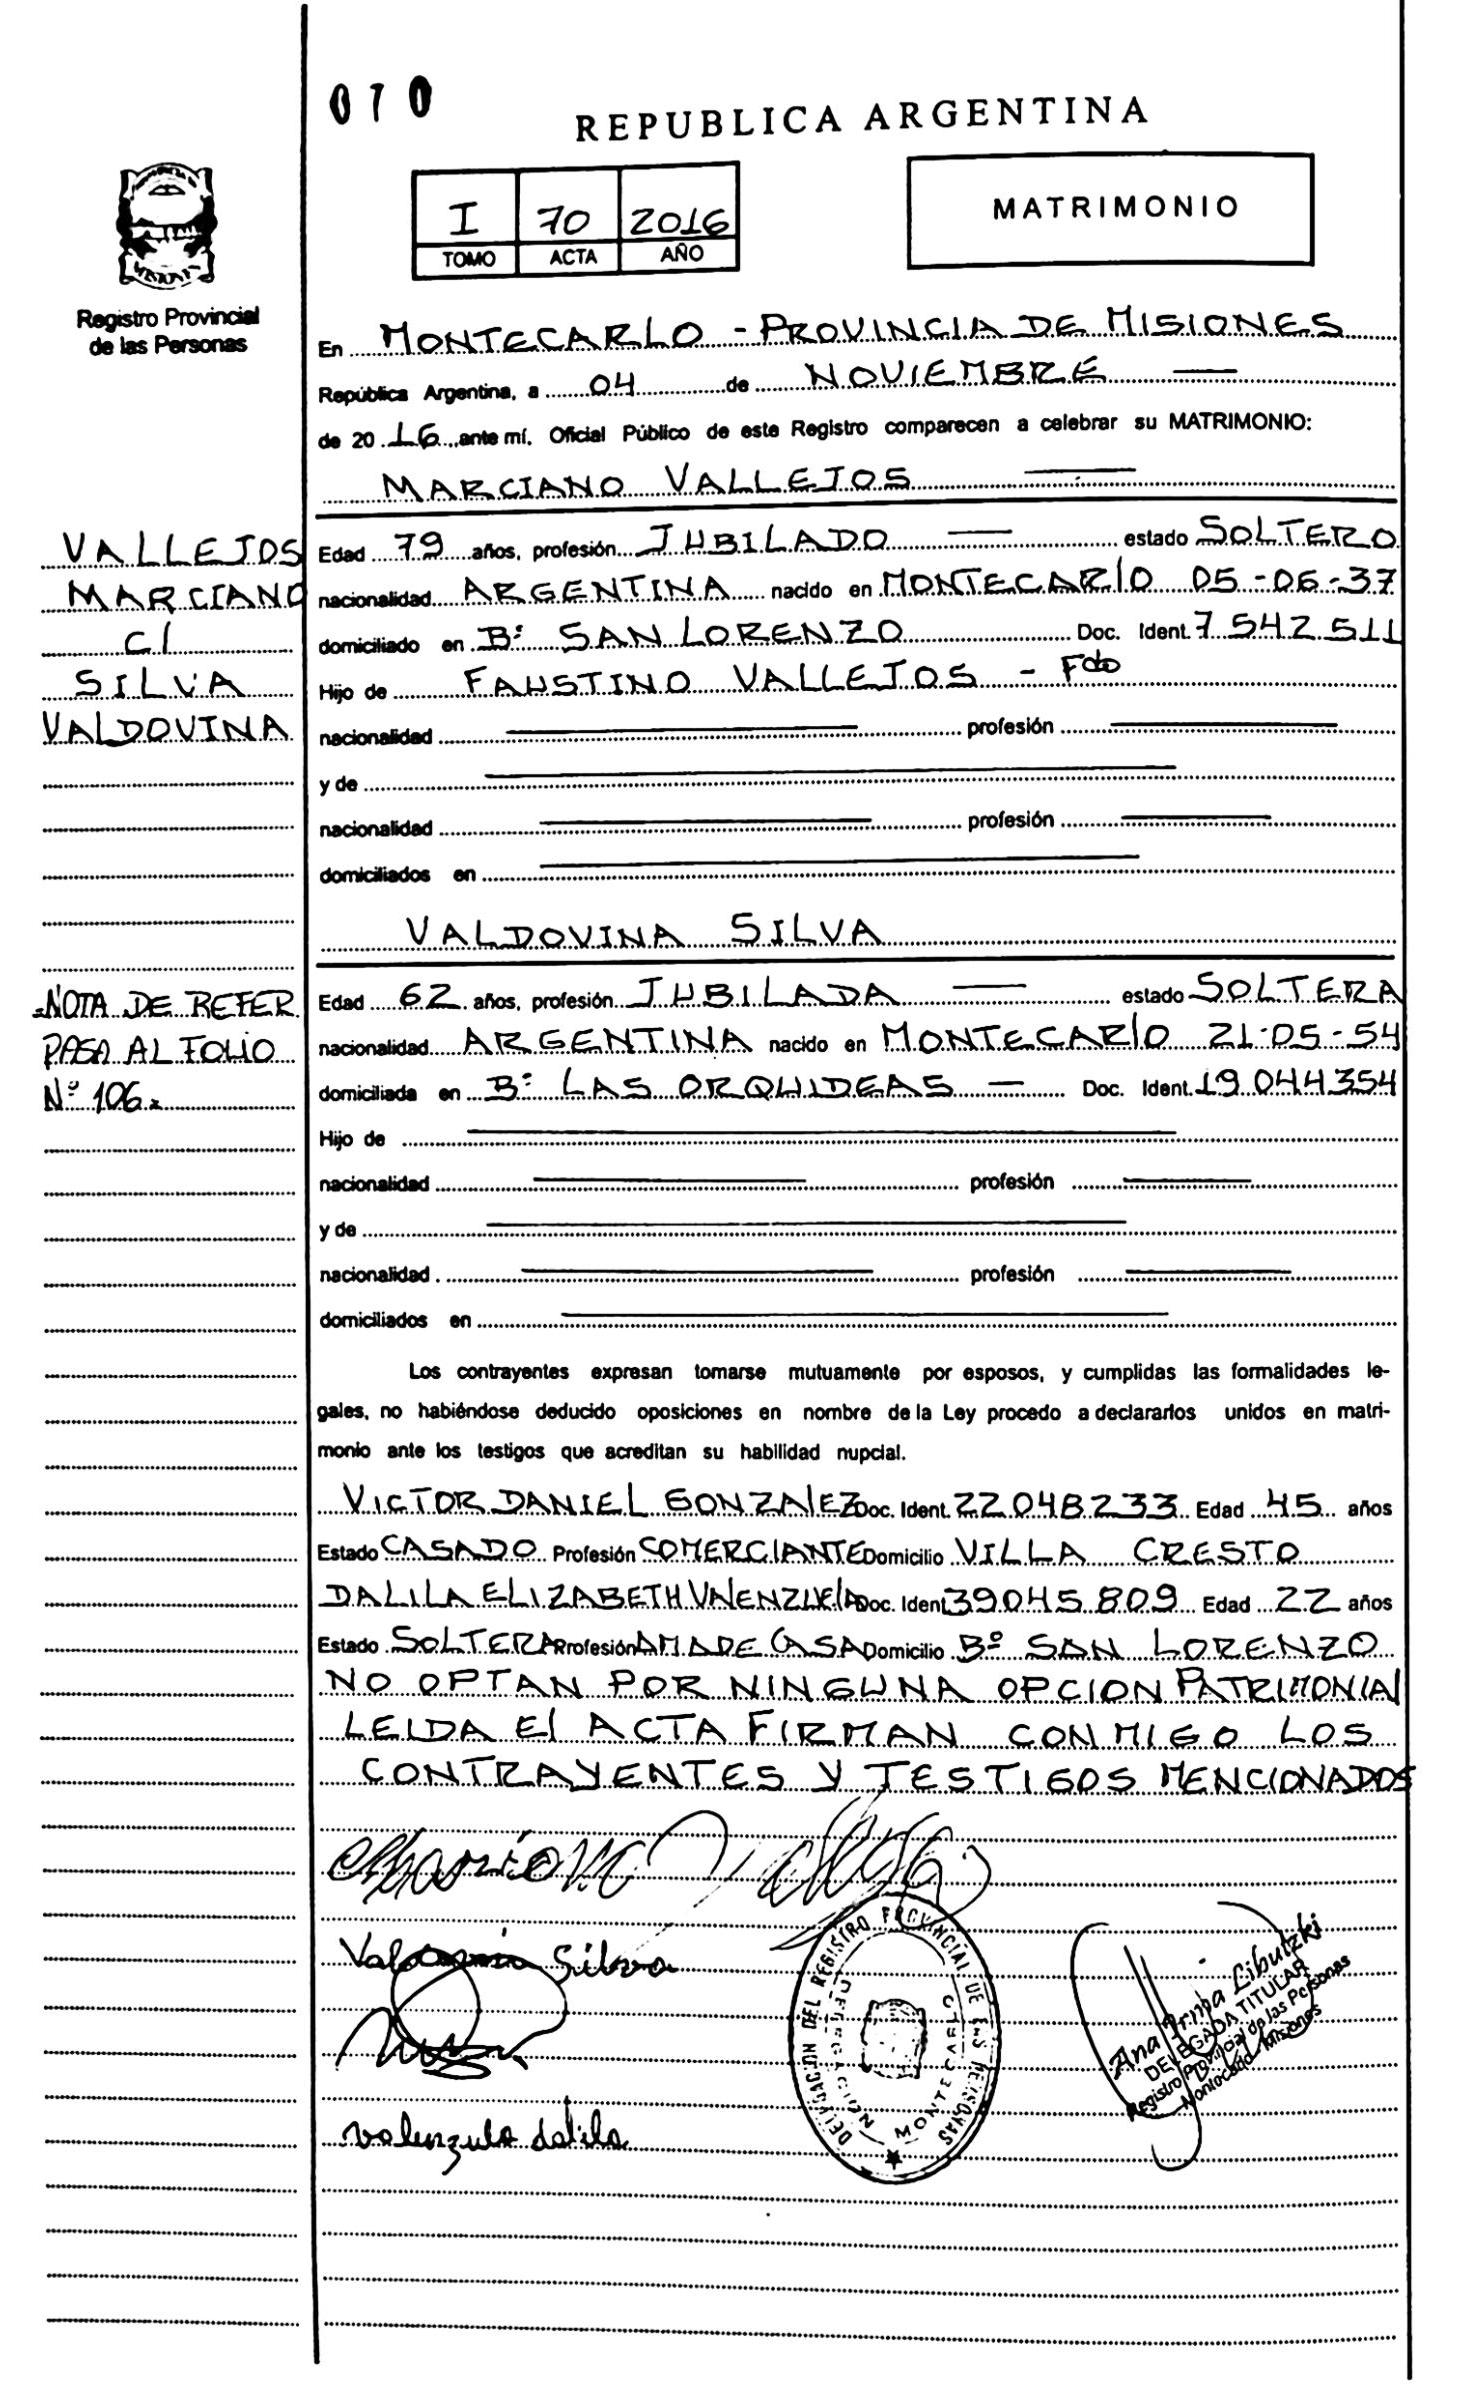 070
REPUBLICA ARGENTINA
I 70 2016
TOMO ACTA AÑO
MATRIMONIO
Registro Provincial
de las Personas
En MONTECARLO - PROVINCIA DE MISIONES
República Argentina, a 04 de NOVIEMBRE
de 2016 ante mí, Oficial Público de este Registro comparecen a celebrar su MATRIMONIO:
MARCIANO VALLEJOS
VALLEJOS
MARCIANO
C/
SILVA
VALDOVINA
Edad 79 años, profesión JUBILADO estado SOLTERO
nacionalidad ARGENTINA nacido en MONTECARLO 05-06-37
domiciliado en Bº SAN LORENZO Doc. Ident. 7542511
Hijo de FAUSTINO VALLEJOS - Fdo
nacionalidad profesión
y de
nacionalidad profesión
domiciliados en
VALDOVINA SILVA
NOTA DE REFER
PASA AL FOLIO
Nº 106
Edad 62 años, profesión JUBILADA estado SOLTERA
nacionalidad ARGENTINA nacido en MONTECARLO 21-05-54
domiciliada en Bº LAS ORQUIDEAS Doc. Ident. 19.044.354
Hijo de
nacionalidad profesión
y de
nacionalidad profesión
domiciliados en
Los contrayentes expresan tomarse mutuamente por esposos, y cumplidas las formalidades le-
gales, no habiéndose deducido oposiciones en nombre de la Ley procedo a declararlos unidos en matri-
monio ante los testigos que acreditan su habilidad nupcial.
VICTOR DANIEL GONZALEZ Doc. Ident. 22.048.233 Edad 45 años
Estado CASADO Profesión COMERCIANTE Domicilio VILLA CRESTO
DALILA ELIZABETH VALENZUELA Doc. Ident. 39.045.809 Edad 22 años
Estado SOLTERA Profesión AMA DE CASA Domicilio Bº SAN LORENZO
NO OPTAN POR NINGUNA OPCION PATRIMONIAL
LEIDA El ACTA FIRMAN CONMIGO LOS
CONTRAYENTES Y TESTIGOS MENCIONADOS
Valdovina Silva
valenzuela dalila
DELEGACION DEL REGISTRO PROVINCIAL DE LAS PERSONAS
MONTECARLO
Ana Irma Libutzki
DELEGADA TITULAR
Registro Provincial de las Personas
Montecarlo Misiones